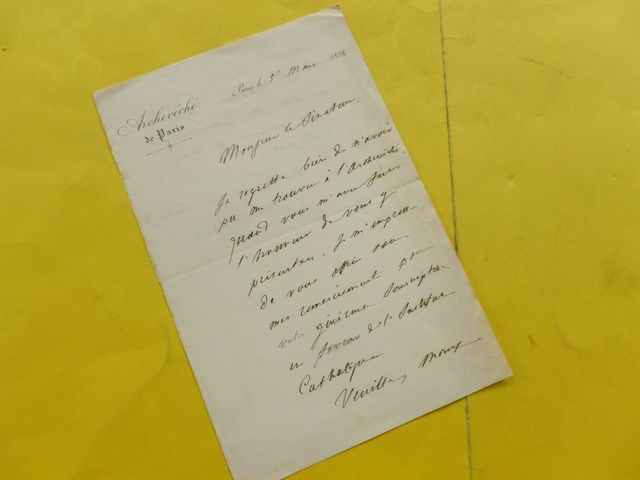 Archevêché
de Paris
Paris le 5 Mars 189
Monsieur le Sénateur,
Je regrette bien de n'avoir
pu me trouver à l'Archevêché
quand vous m'avez fait
l'honneur de vous y
présenter. Je m'empresse
de vous offrir
mes remerciements pour
votre généreuse souscription
en faveur de l'Institut
Catholique
Veuillez, Mons